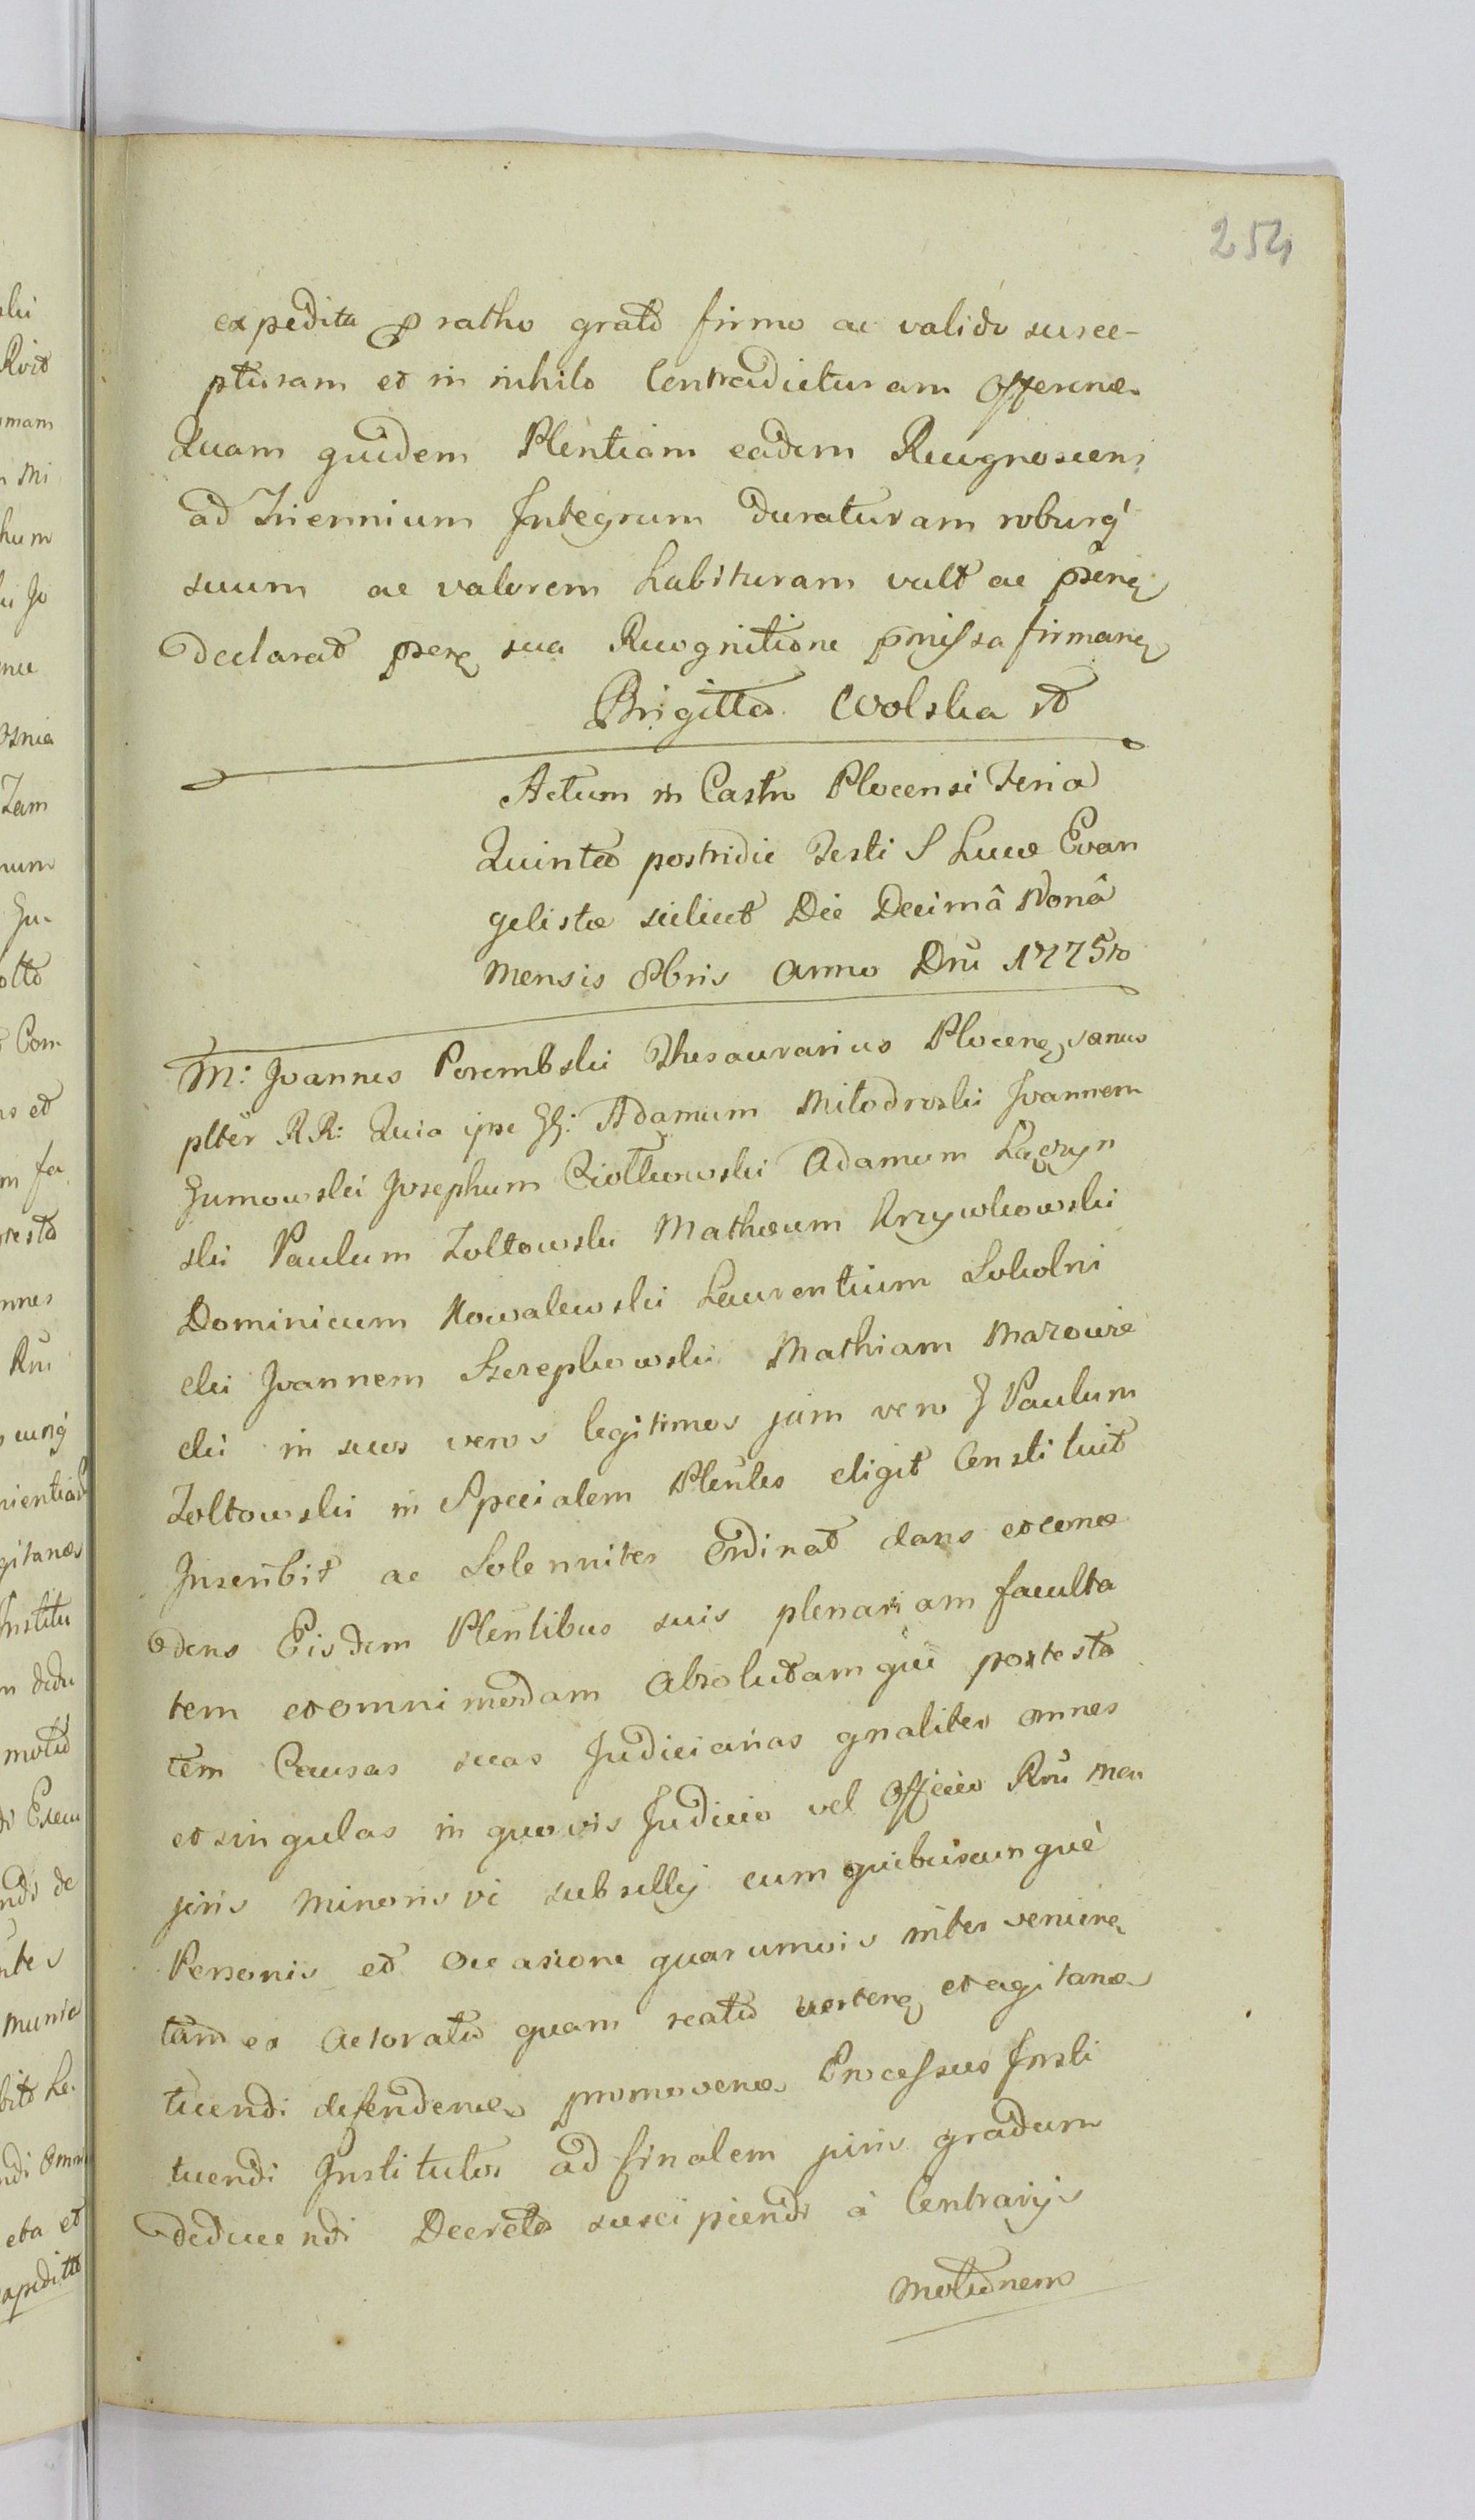 254
expedita p ratho grato firmo ac valido susce-
pturam et in nihilo Contradicturam offerend.
Quam quidem Plentiam eadem Recognoscens
ad Triennium Integrum duraturam roburq
suum ac valorem habituram vult ac psenq
declarat psenq sua Recognitione pmissa firmanq
Brigitta Wolska st
Actum in Castro Plocensi Feria
Quinta postridie Festi S Lucæ Evan
gelistæ scilicet Die Decimâ Nonâ
Mensis 8bris Anno Dni 1775to
M: Joannes Porembski Thesaurarius Plocenq sanus
plter RR: Quia ipse GG: Adamum Miłodroski Joannem
Gumowski Josephum Ciołkowski Adamum Łączyn
ski Paulum Zołtowski Mathæum Krzywkowski
Dominicum Kowalewski Laurentium Sokolni
cki Joannem Szczepkowski Mathiam Mazowie
cki in suos veros legitimos jam vero G Paulum
Zołtowski in Specialem Plentes eligit Constituit
Inscribit ac Solenniter Ordinat dans et conce
dens Eisdem Plentibus suis plenariam faculta
tem et omnimodam Absolutamque potesta
tem Causas suas Judiciarias gnaliter omnes
et singulas in quovis Judicio vel Officio Rni Ma
joris Minorisve subsellij cum quibuscunquè
Personis et Occasione quarumvis inter venienq
tam ex Actoratu quam reatu vertenq et agitand
tuendi defendend promovend Processus Insti
tuendi Institutos ad finalem juris gradum
deducendi Decreta suscipiendi à Contrarijs
Motionem